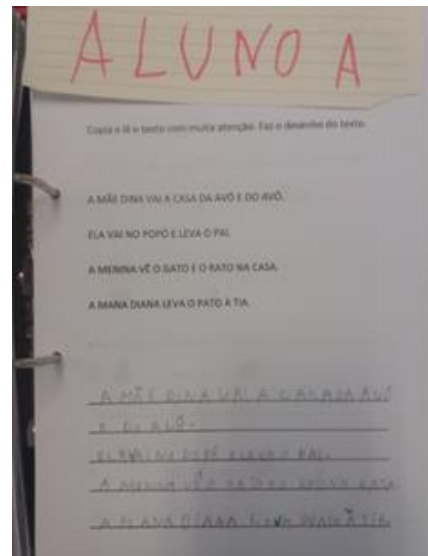 ALUNO A
Copia e lê o texto com muita atenção. Faz o desenho do texto.
A MÃE DINA VAI A CASA DA AVÓ E DO AVÔ.
ELA VAI NO POPÓ E LEVA O PAI.
A MENINA VÊ O GATO E O RATO NA CASA.
A MANA DIANA LEVA O PATO À TIA.
A MÃE DINA VAI A CASA DA AVÓ
E DO AVÔ.
ELA VAI NO POPÓ E LEVA O PAI.
A MENINA VÊ O
A MANA DIANA